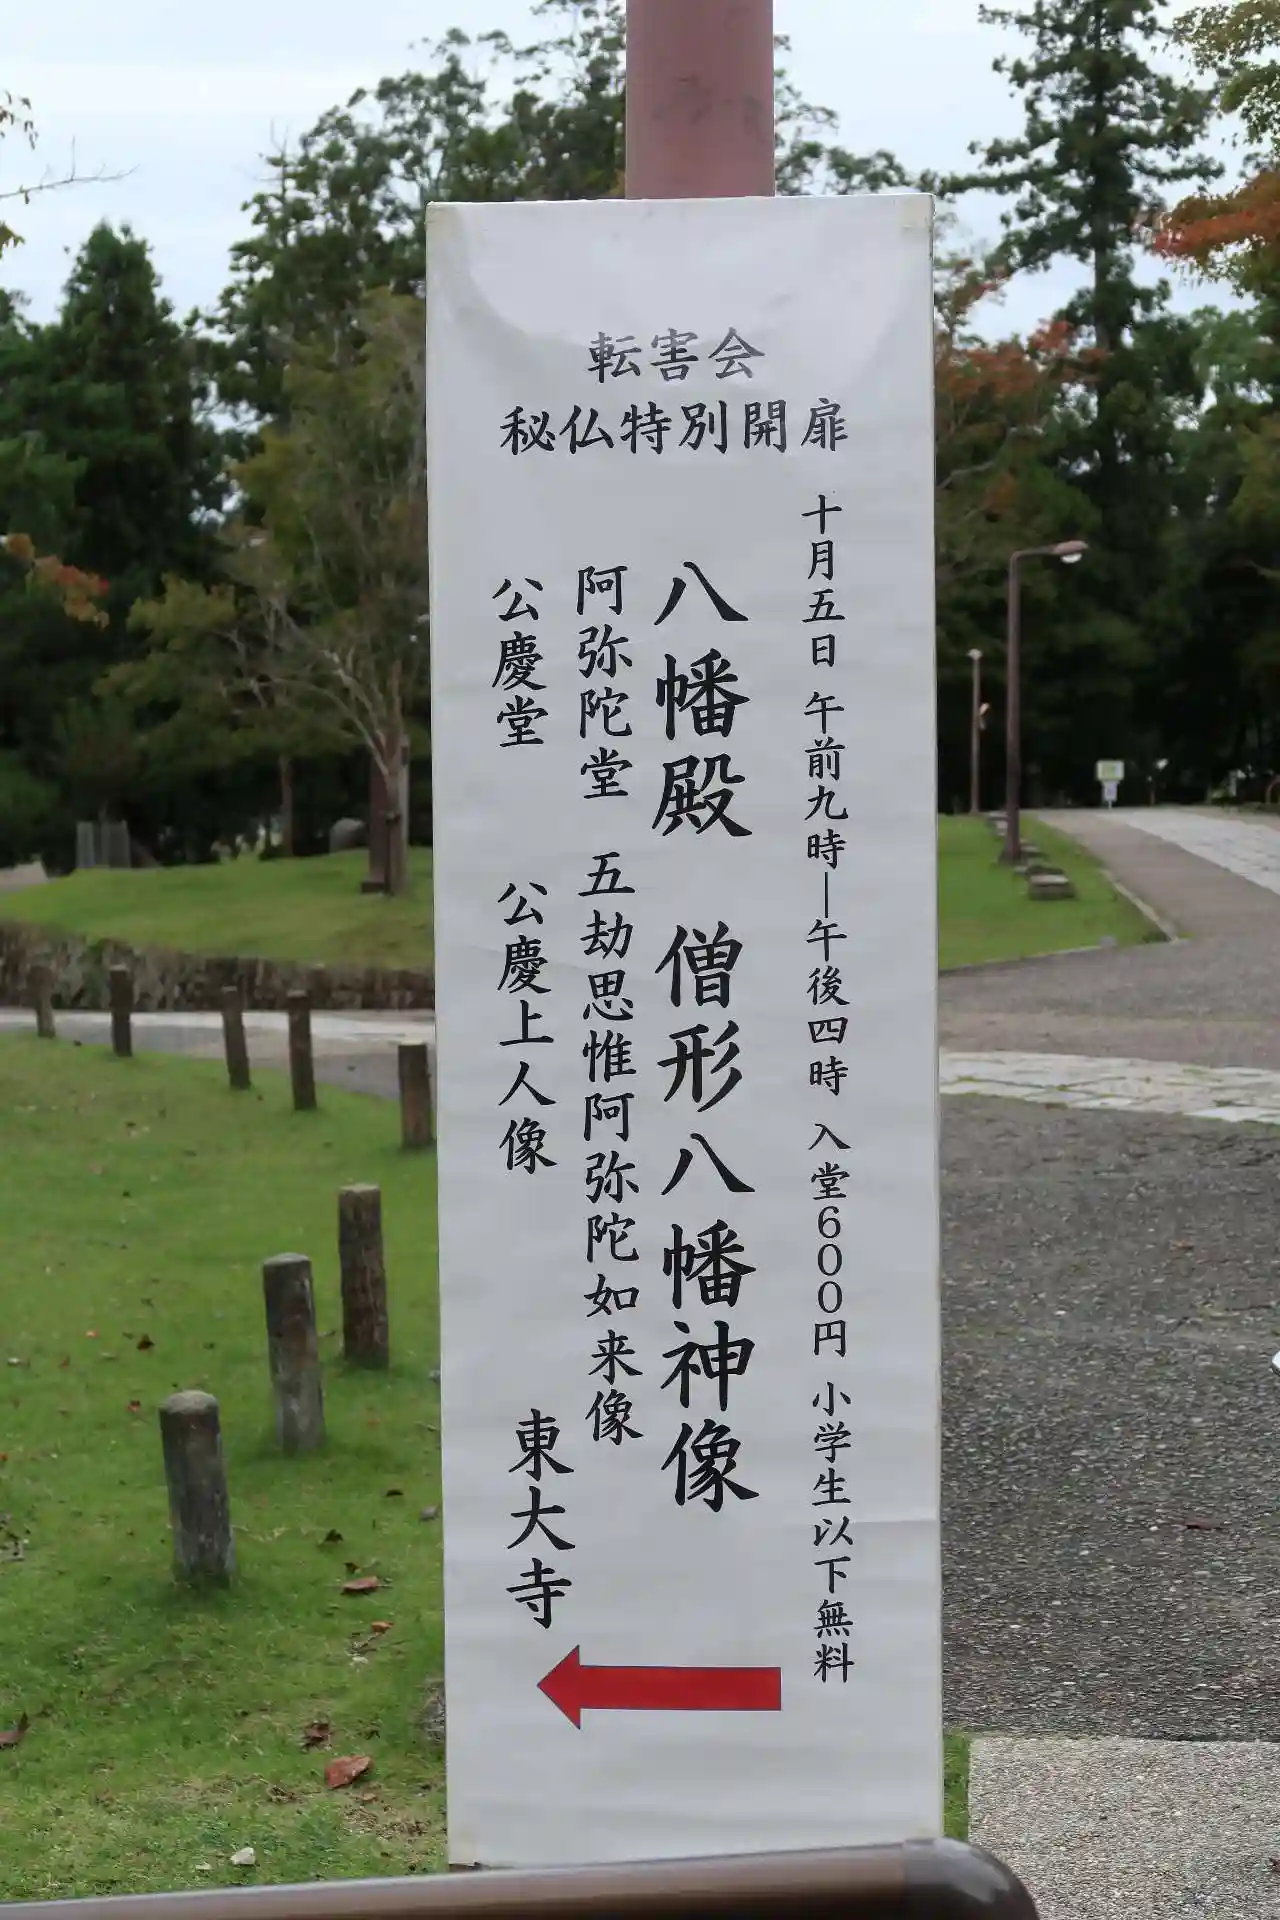 転害会
秘仏特別開扉
十月五日 午前九時―午後四時 入堂600円 小学生以下無料
八幡殿 僧形八幡神像
阿弥陀堂 五劫思惟阿弥陀如来像
公慶堂 公慶上人像
東大寺